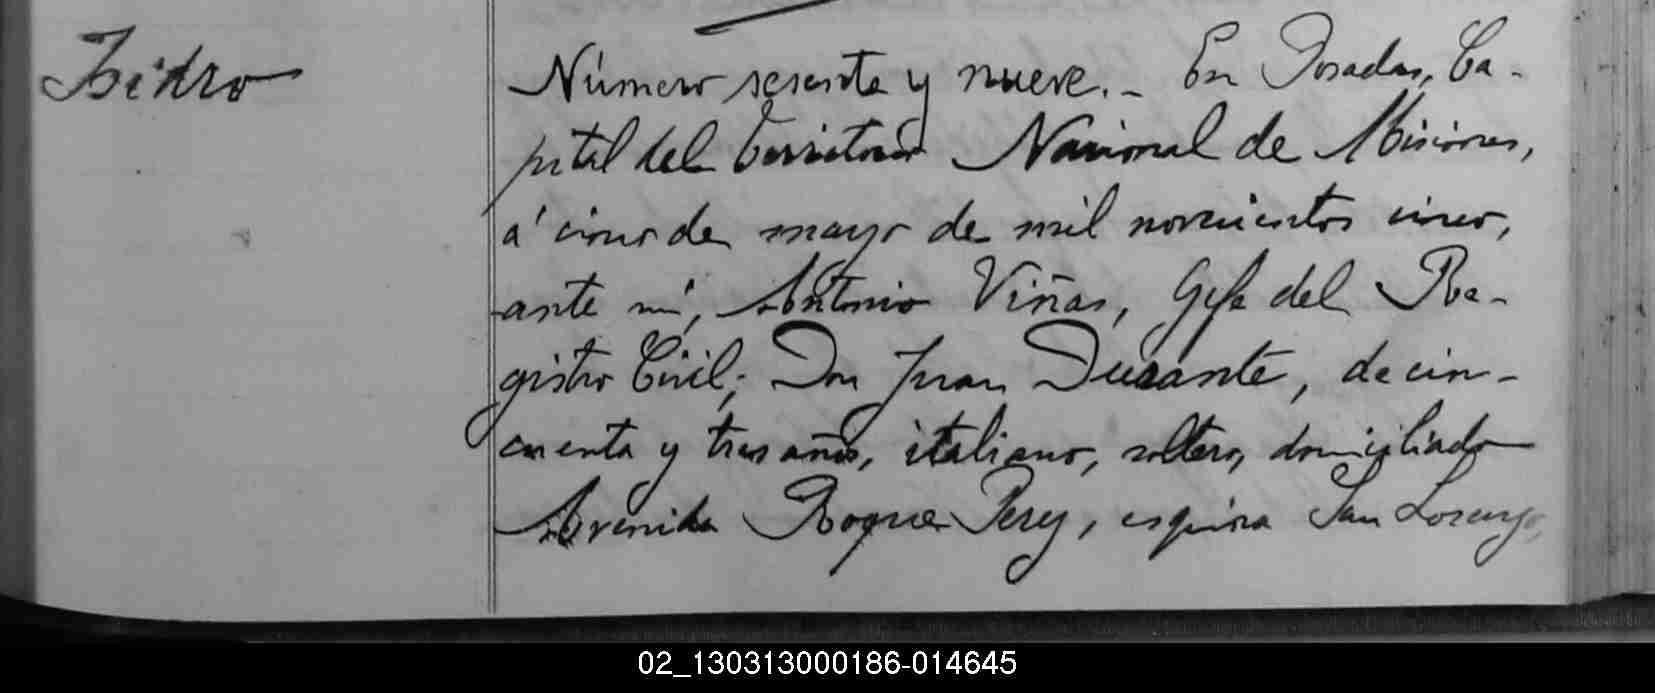 Isidro
Número sesenta y nueve.- En Posadas, Ca-
pital del Territorio Nacional de Misiones,
á cinco de mayo de mil novecientos cinco,
ante mí, Antonio Viñas, Gefe del Re-
gistro Civil; Don Juan Durante, de cin-
cuenta y tres años, italiano, soltero, domiciliado
Avenida Roque Perez, esquina San Lorenzo,
02_130313000186-014645